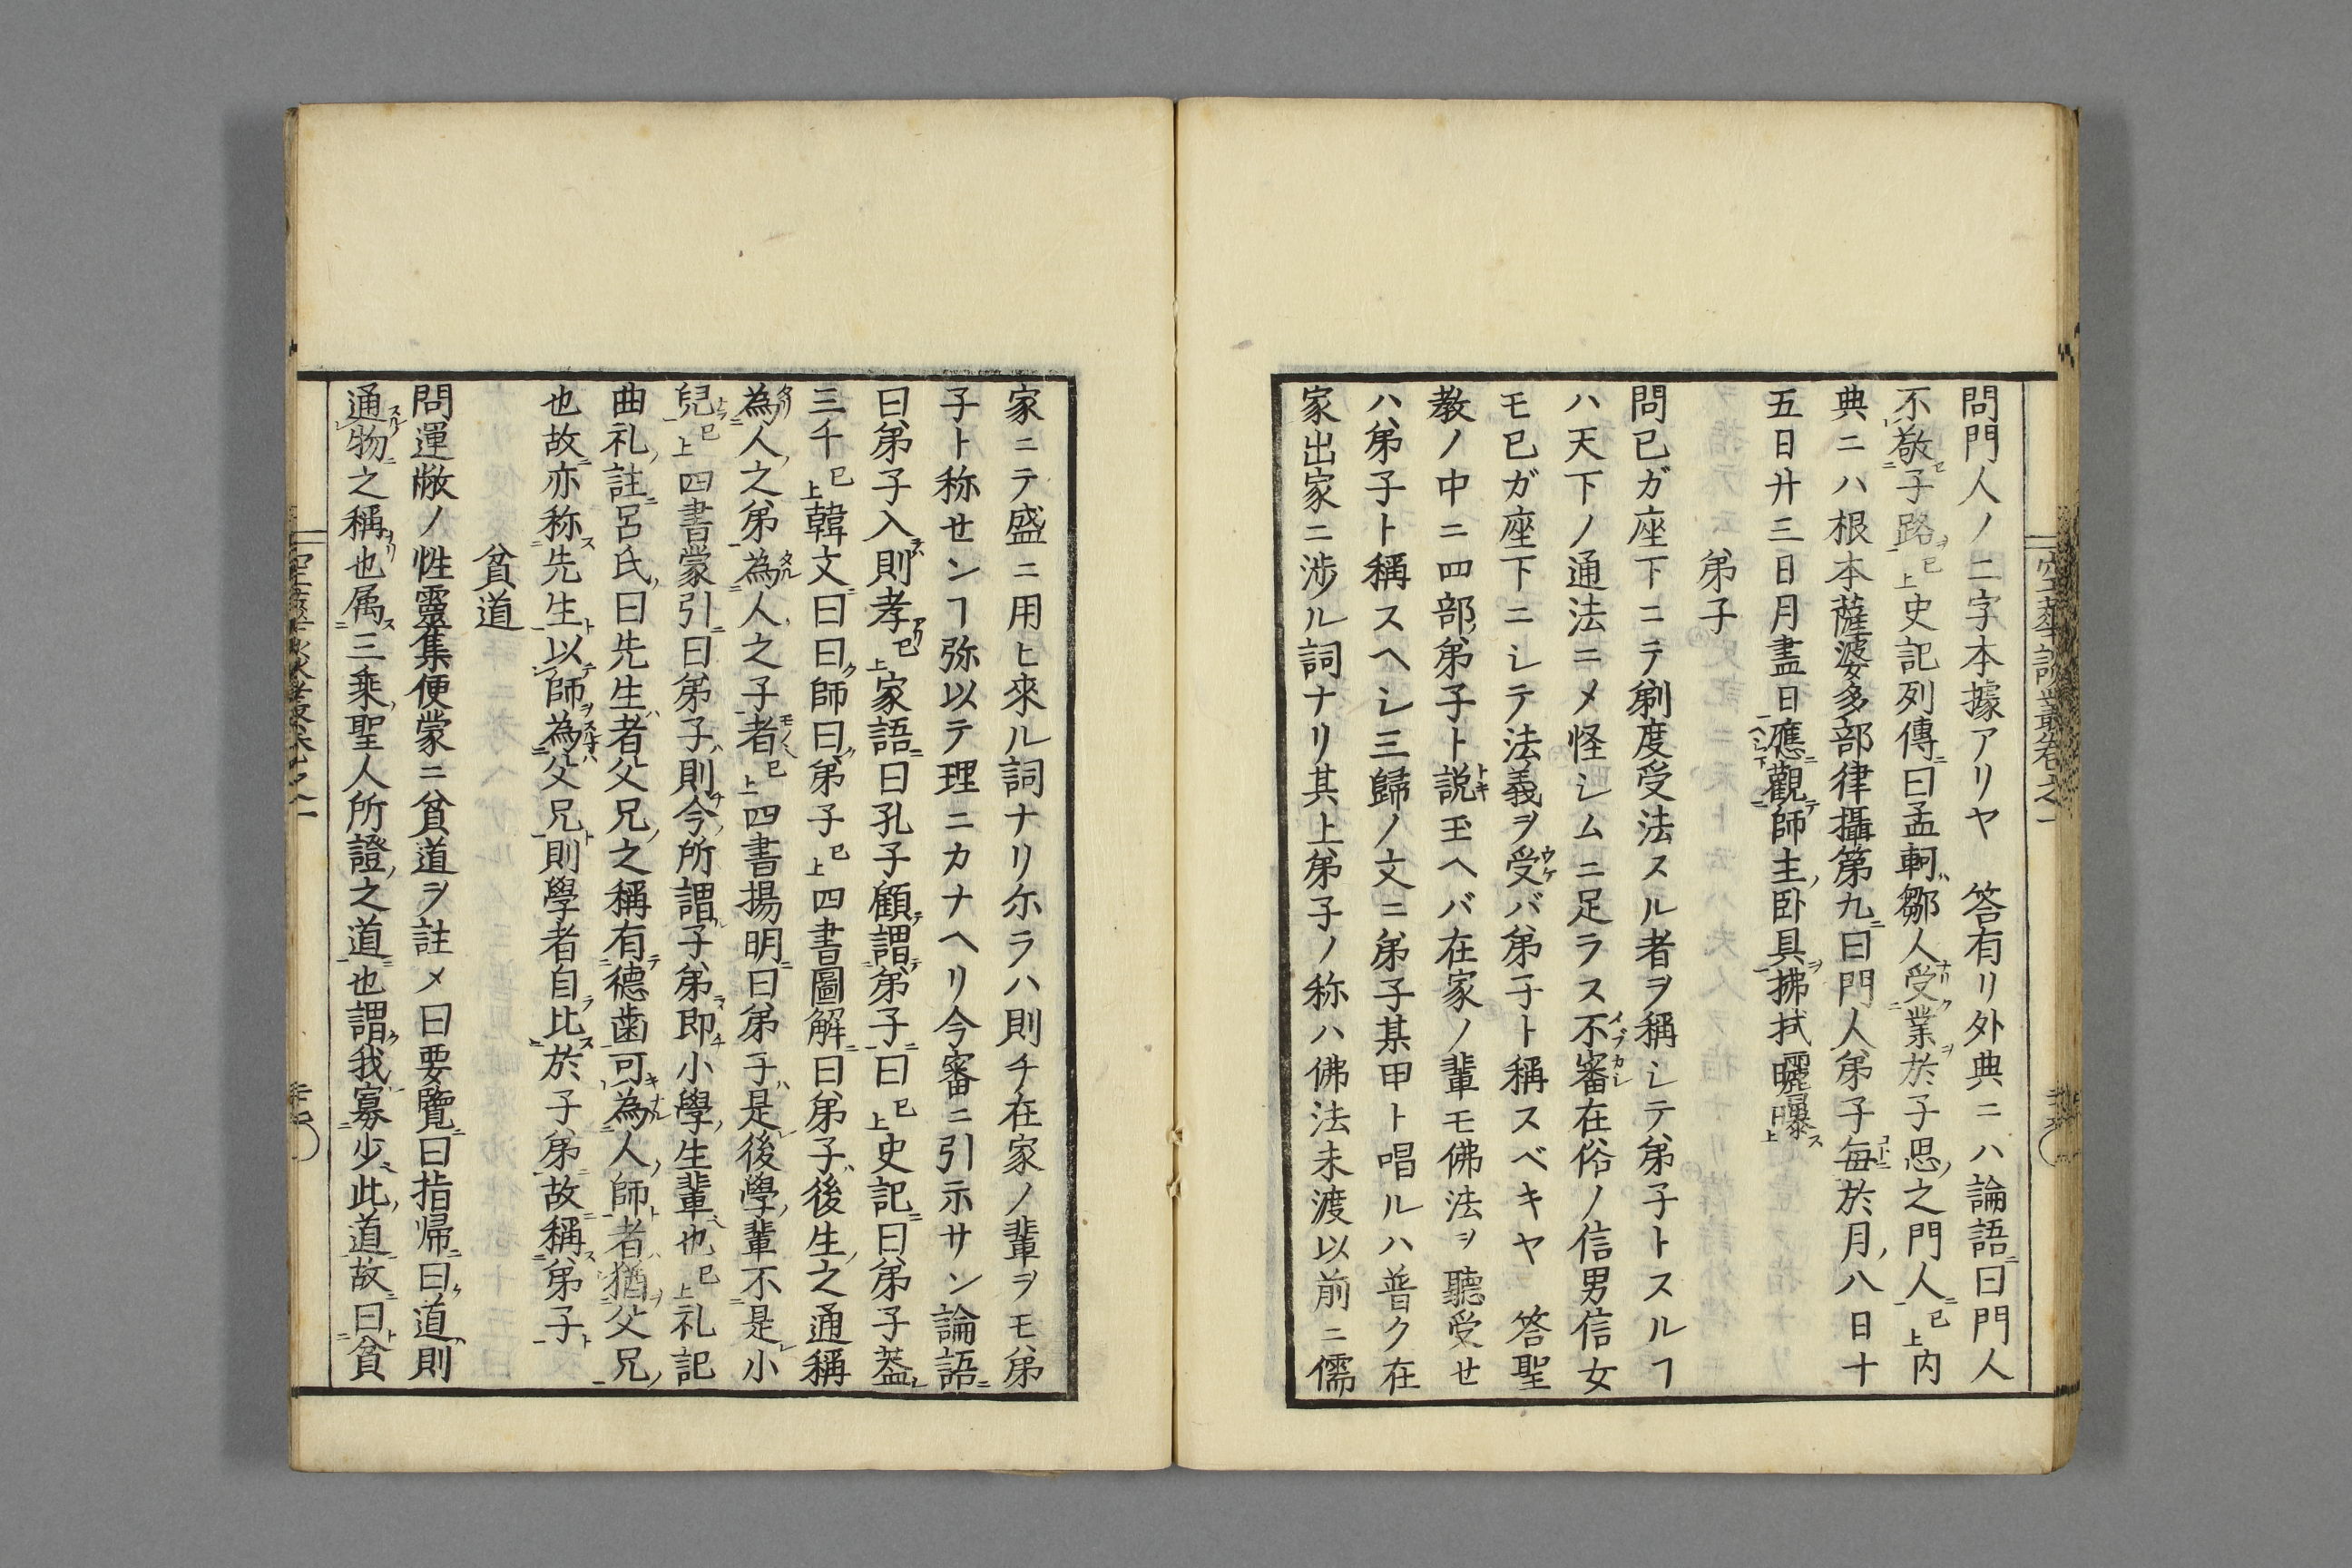 問門人ノ二字本據アリヤ　答有リ外典ニハ論語ニ曰門人
不敬子路ヲ已上史記列傳ニ曰孟軻ハ鄒人ナリ受業ヲ於子思ノ之門人ニ已上内
典ニハ根本薩婆多部律攝第九ニ曰門人弟子毎於月ノ八日十
五日廿三日月盡日應觀師主ノ臥具ヲ拂拭曬曝ス已上
弟子
問已ガ座下ニテ剃度受法スル者ヲ稱シテ弟子トスルヿ
ハ天下ノ通法ニメ怪シムニ足ラス不審在俗ノ信男信女
モ已ガ座下ニシテ法義ヲ受バ弟子ト稱スベキヤ　答聖
教ノ中ニ四部ノ弟子ト説玉ヘバ在家ノ輩モ佛法ヲ聽受セ
ハ弟子ト稱スヘシ三歸ノ文ニ弟子某甲ト唱ルハ普ク在
家出家ニ渉ル詞ナリ其上弟子ノ称ハ佛法未渡以前ニ儒
家ニテ盛ニ用ヒ來ル詞ナリ尓ラハ則チ在家ノ輩ヲモ弟
子ト称センヿ弥以テ理ニカナヘリ今審ニ引示サン論語ニ
曰弟子入則孝已上家語ニ曰孔子顧テ謂テ弟子ニ曰已上史記ニ曰弟子葢
三千已上韓文ニ曰曰ク師曰ク弟子已上四書圖解ニ曰弟子ハ後生ノ之通稱
為人ノ之弟為人ノ之子者已上四書揚明ニ曰弟子ハ是後學ノ輩不是小
兒已上四書蒙引ニ曰弟子ハ則今ノ所謂子弟即小學ノ生輩也已上礼記
曲礼ノ註ニ呂氏曰先生者ハ父兄ノ之稱有德齒可為人ノ師者ハ猶父兄ノ
也故ニ亦称ス先生ト以師ヲ為父兄ト則學者自比ス於子弟ニ故ニ稱ス弟子ト
貧道
問運敞ノ性靈集便蒙ニ貧道ヲ註メ曰要覽ニ曰指帰ニ曰ク道ハ則
通物ニ之稱ナリ也属ス三乘ノ聖人所證ノ之道ニ也謂ク我寡少此ノ道故ニ曰貧
空華談叢卷之一